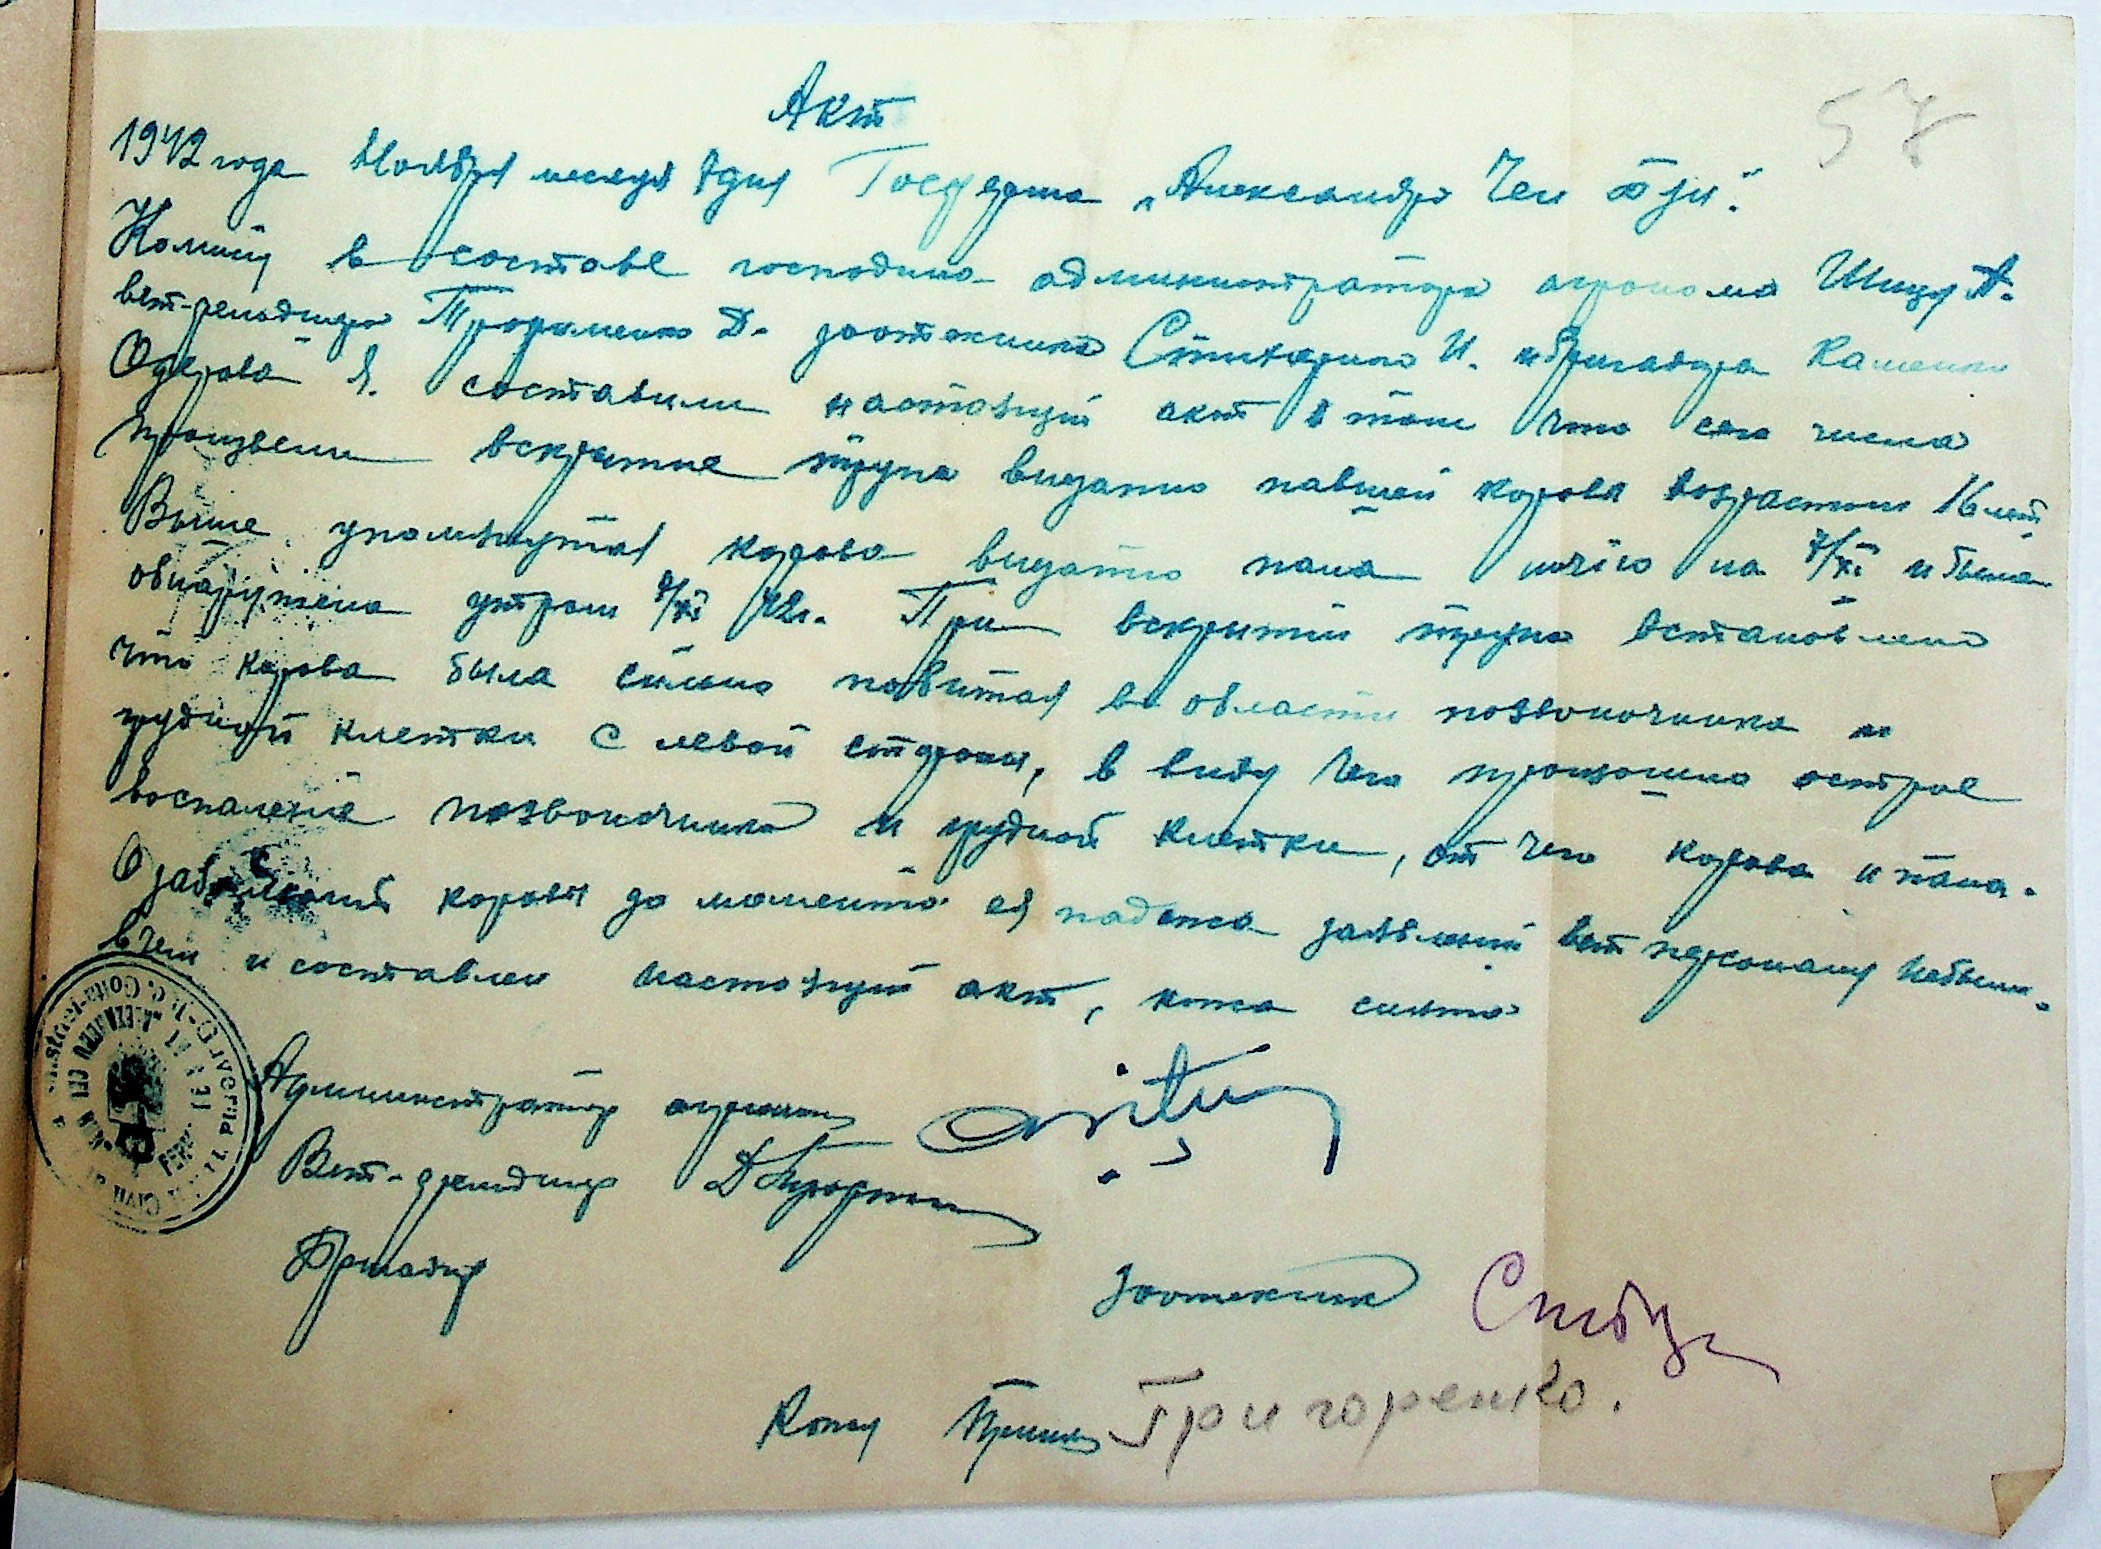 Акт
57
1942 года Ноября месяця 7 дня Госферма „Александро Чел Бун".
Комисия в составе господина администратора агронома А.
вет-фельдшера Трофименко Д. зоотехника И. и бригадира
Я. составили настоящий акт в том что сего числа
произвели вскрытие трупа внезапно павшей коровы возрастом 16 лет
Выше упомянутая корова внезапно пала ночію на 7/XI и была
обнаружена утром 7/XI 42г. При вскрытии трупа встановлено
что корова была сильно побитая в области позвоночника и
грудной клетки с левой стороны, в виду чего произошло острое
воспаление позвоночника и грудной клетки, от чего корова и пала.
О заболеваний коровы до момента ея падежа заявлений вет персоналу небыло.
в чем и составлен настоящий акт, кожа снята
Администратор агроном
Вет-фельдшер Д Трофимен
Бригадир
Зоотехник
Кожу принял Григоренко.